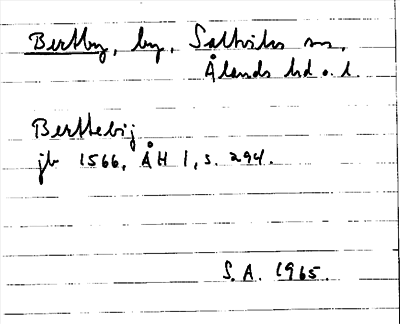 Bertby, by, Saltviks sn,
Ålands hd o. l.
Berttebij
jb 1566, ÅH 1, s. 294.
S.A. 1965.